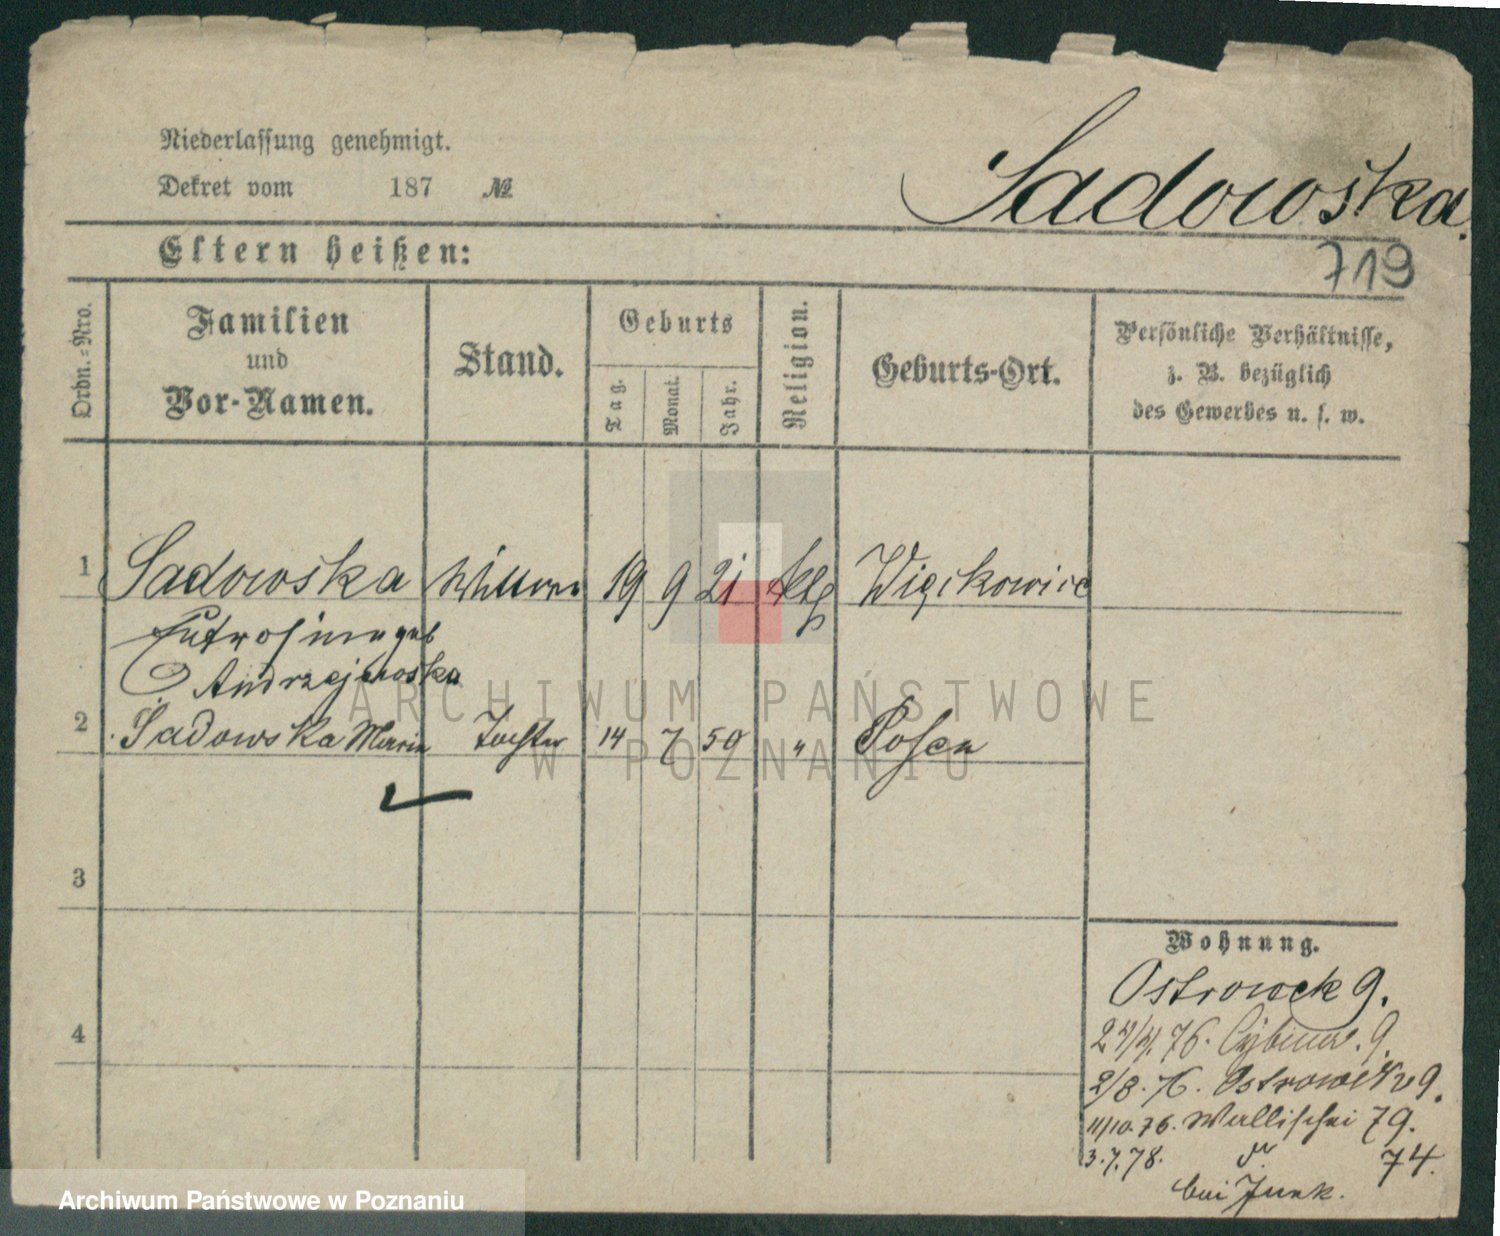 Niederlassung genehmigt.
Dekret vom 187 №
Sadowska.
719
Eltern heißen:
Ordn.=Nro.
Familien
und
Vor-Namen.
Stand.
Geburts
Tag.
Monat.
Jahr.
Religion.
Geburts-Ort.
Persönliche Verhältnisse,
z. B. bezüglich
des Gewerbes u. s. w.
1 Sadowska Wittwe 19 9 21 ktlg Więckowice
Eufrosine geb
Andrzejewska
2 Sadowska Maria Tochter 14 7 59 " Posen
3
4
Wohnung.
Ostrowek 9.
24/4. 76. Cybinar. 9.
2/8. 76. Ostrowek 9.
11/10. 76. Wallischei 79.
3. 7. 78. 74.
bei Junk.
ARCHIWUM PAŃSTWOWE
W POZNANIU
Archiwum Państwowe w Poznaniu